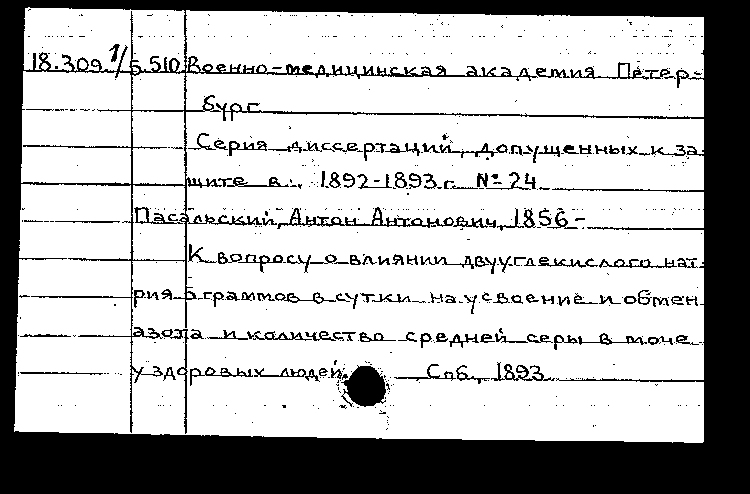 18.309 1/5.510 Военно-медицинская академия Петер-
бург
Серия диссертаций, допущенных к за-
щите в 1892-1893 г. № 24
Пасальский, Антон Антонович, 1856-
К вопросу о влиянии двууглекислого нат-
рия 5 граммов в сутки на усвоение и обмен
азота и количество средней серы в моче
у здоровых людей. Спб., 1893